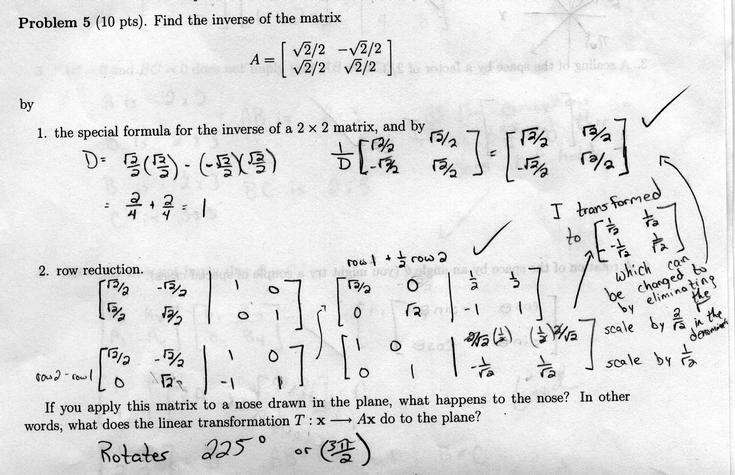 Problem 5 (10 pts). Find the inverse of the matrix
A = [ √2/2 −√2/2
√2/2 √2/2 ]
by
1. the special formula for the inverse of a 2 × 2 matrix, and by
D = √2/2 (√2/2) - (-√2/2)(√2/2) 1/D [ √2/2 √2/2
-√2/2 √2/2 ] = [ √2/2 √2/2
-√2/2 √2/2 ] ✓
= 2/4 + 2/4 = 1
I transformed
to [ 1/√2 1/√2
-1/√2 1/√2 ]
which can
be changed to
by eliminating
the
scale by 2/√2 in the
scale by 1/√2
2. row reduction.
row 1 + 1/2 row 2 ✓
[ √2/2 -√2/2 | 1 0
√2/2 √2/2 | 0 1 ]
[ √2/2 0 | 1/2 1/2
0 √2 | -1 1 ]
row2 - row1 [ √2/2 -√2/2 | 1 0
0 √2 | -1 1 ]
[ 1 0 | 2/√2 (1/2) (1/2) 2/√2
0 1 | -1/√2 1/√2 ]
If you apply this matrix to a nose drawn in the plane, what happens to the nose? In other
words, what does the linear transformation T : x ⟶ Ax do to the plane?
Rotates 225° or (3π/2)